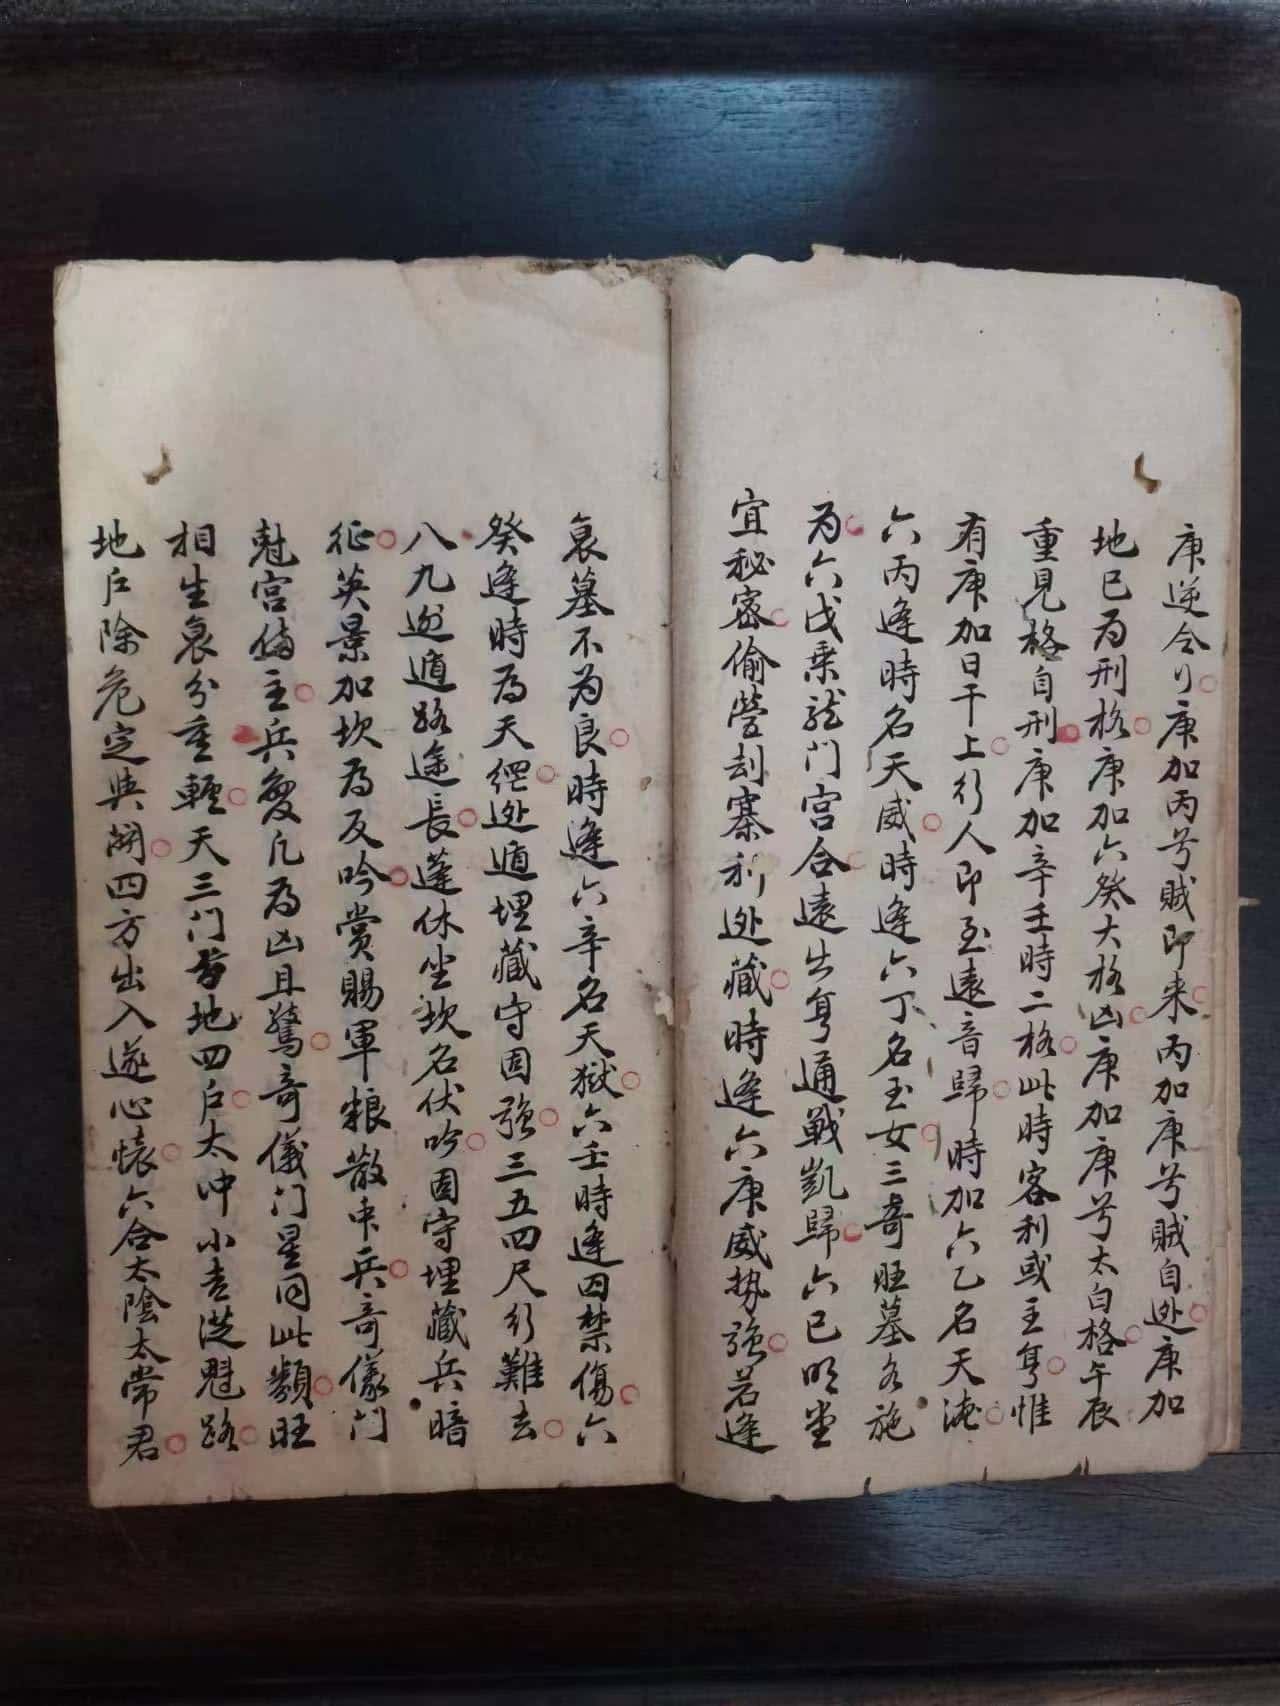 庚逆令行庚加丙兮賊即来丙加庚兮賊自逃庚加
地已为刑格庚加六癸大格凶庚加庚兮太白格午辰
重見格自刑庚加辛壬時二格此時客利或主身惟
有庚加日干上行人即至遠音歸時加六乙名天淹
六丙逢時名天威時逢六丁名玉女三奇旺墓名施
为六戊乗龙门宫合遠出身通戰凱歸六已明堂
宜秘密偷營刦寨利逃藏時逢六庚威势強若逢
哀墓不为良時逢六辛名天獄六壬時逢囚禁傷六
癸逢時为天網逃遁埋藏守固強三五四尺行難去
八九逃遁路途長蓬休坐坎名伏吟固守埋藏兵暗
征英景加坎为反吟赏賜軍粮散中兵奇儀门
尅宫偹主兵変凡为凶且驚奇儀门星同此類旺
相生哀分重輕天三门兮地四户太冲小吉従魁路
地户除危定與開四方出入遂心懐六合太陰太常君